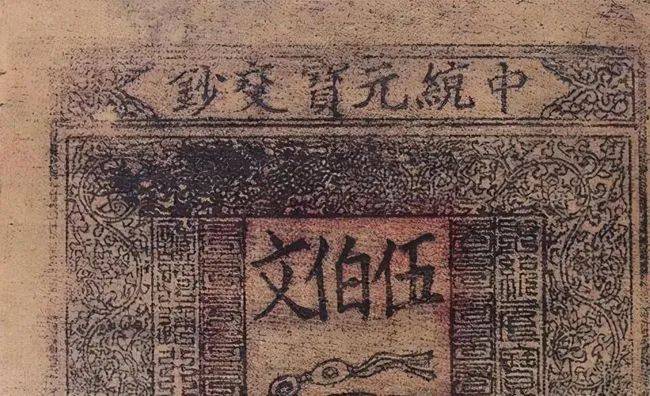 中統元寶交鈔
伍伯文